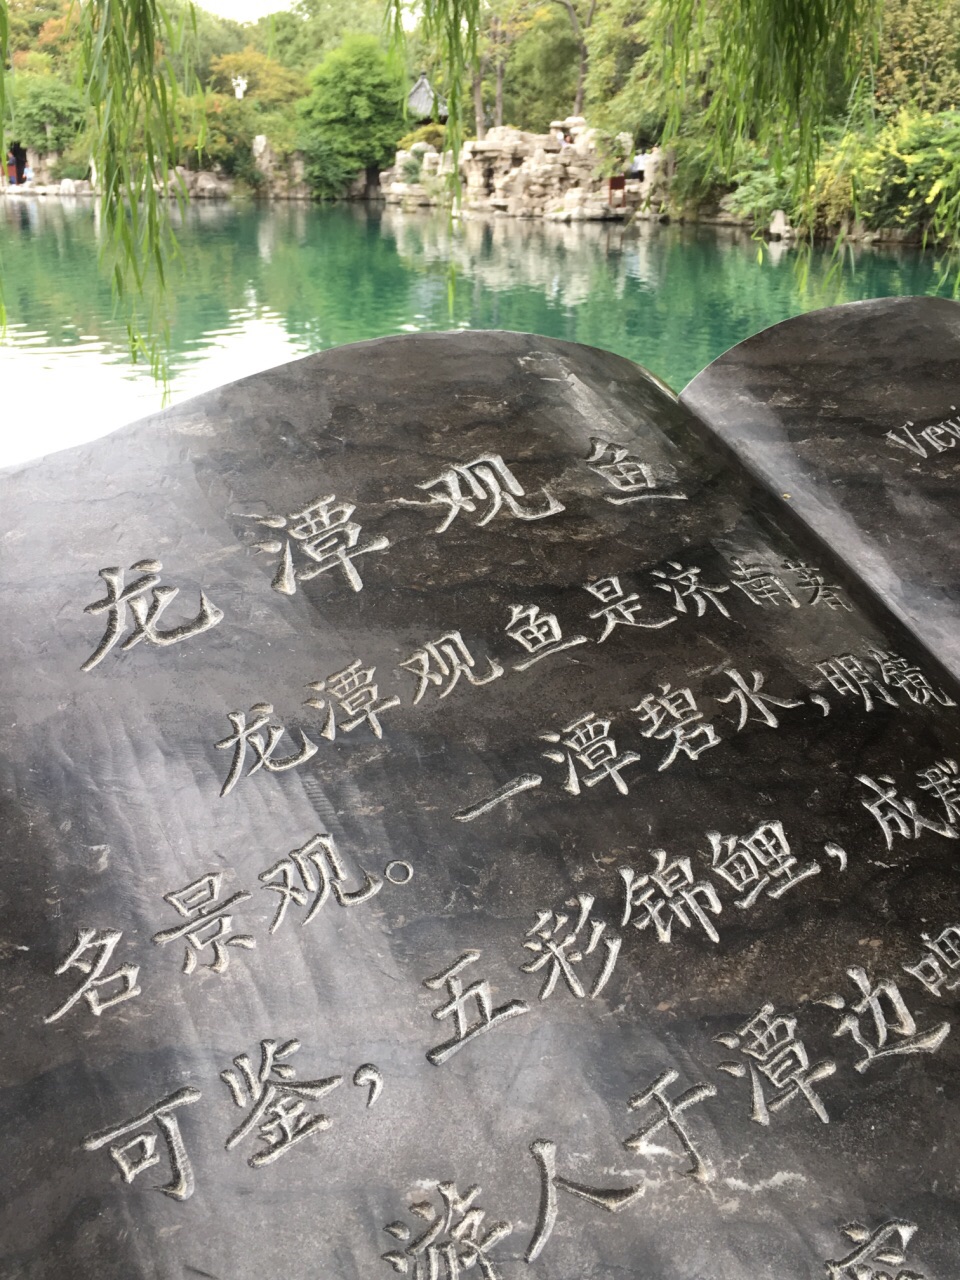 龙潭观鱼
龙潭观鱼是济南著
名景观。一潭碧水,明镜
可鉴,五彩锦鲤,成群
游人于潭边
Viewi